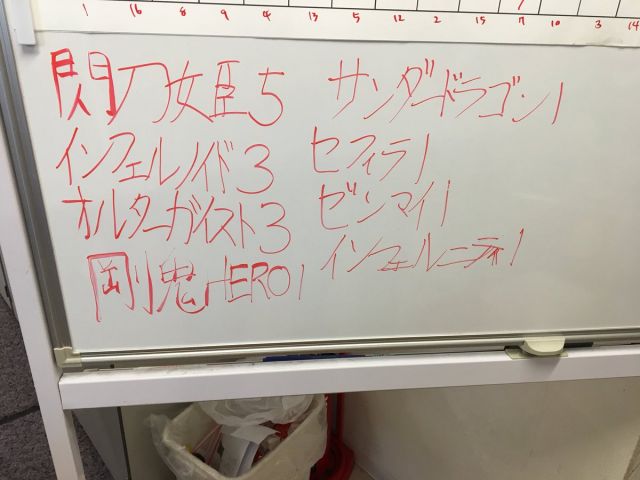 1 16 8 9 4 13 5 12 2 15 7 10 3 14
閃刀女臣5
インフェルノイド3
オルターガイスト3
剛鬼HERO1
サンダードラゴン1
セフィラ1
ゼンマイ1
インフェルニティ1